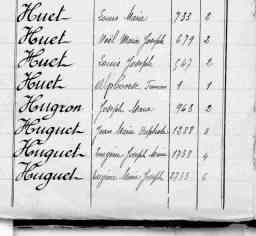 Huet Louis Marie 733 2
Huet Noël Marie Joseph 679 2
Huet Louis Joseph 547 2
Huet Alphonse 1 1
Hugron Joseph Marie 948 2
Huguet Jean Marie 1288 3
Huguet Eugène Joseph Marie 1758 4
Huguet Eugène Marie Joseph 2755 6